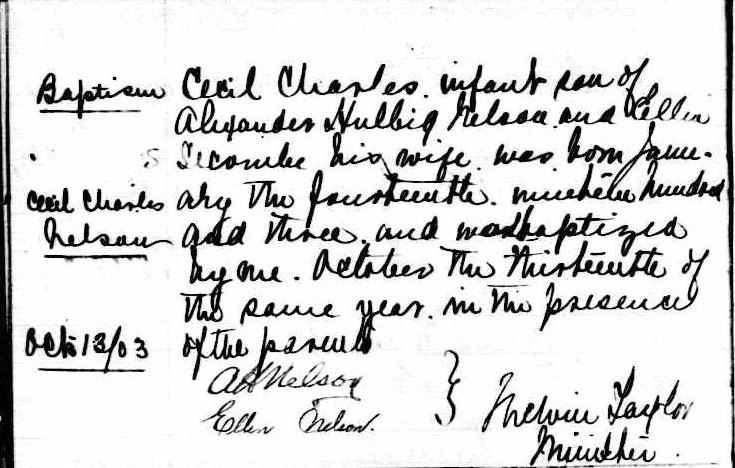 Baptism Cecil Charles. infant son of
Alexander Hulbig Nelson. and Ellen
S Secombe his wife. was born Janu-
Cecil Charles ary the fourteenth. nineteen hundred
Nelson and three. and was baptized
by me. October the thirteenth of
the same year. in the presence
Oct 13/03 of the parents
A H Nelson
Ellen Nelson.
Melvin Taylor
Minister.